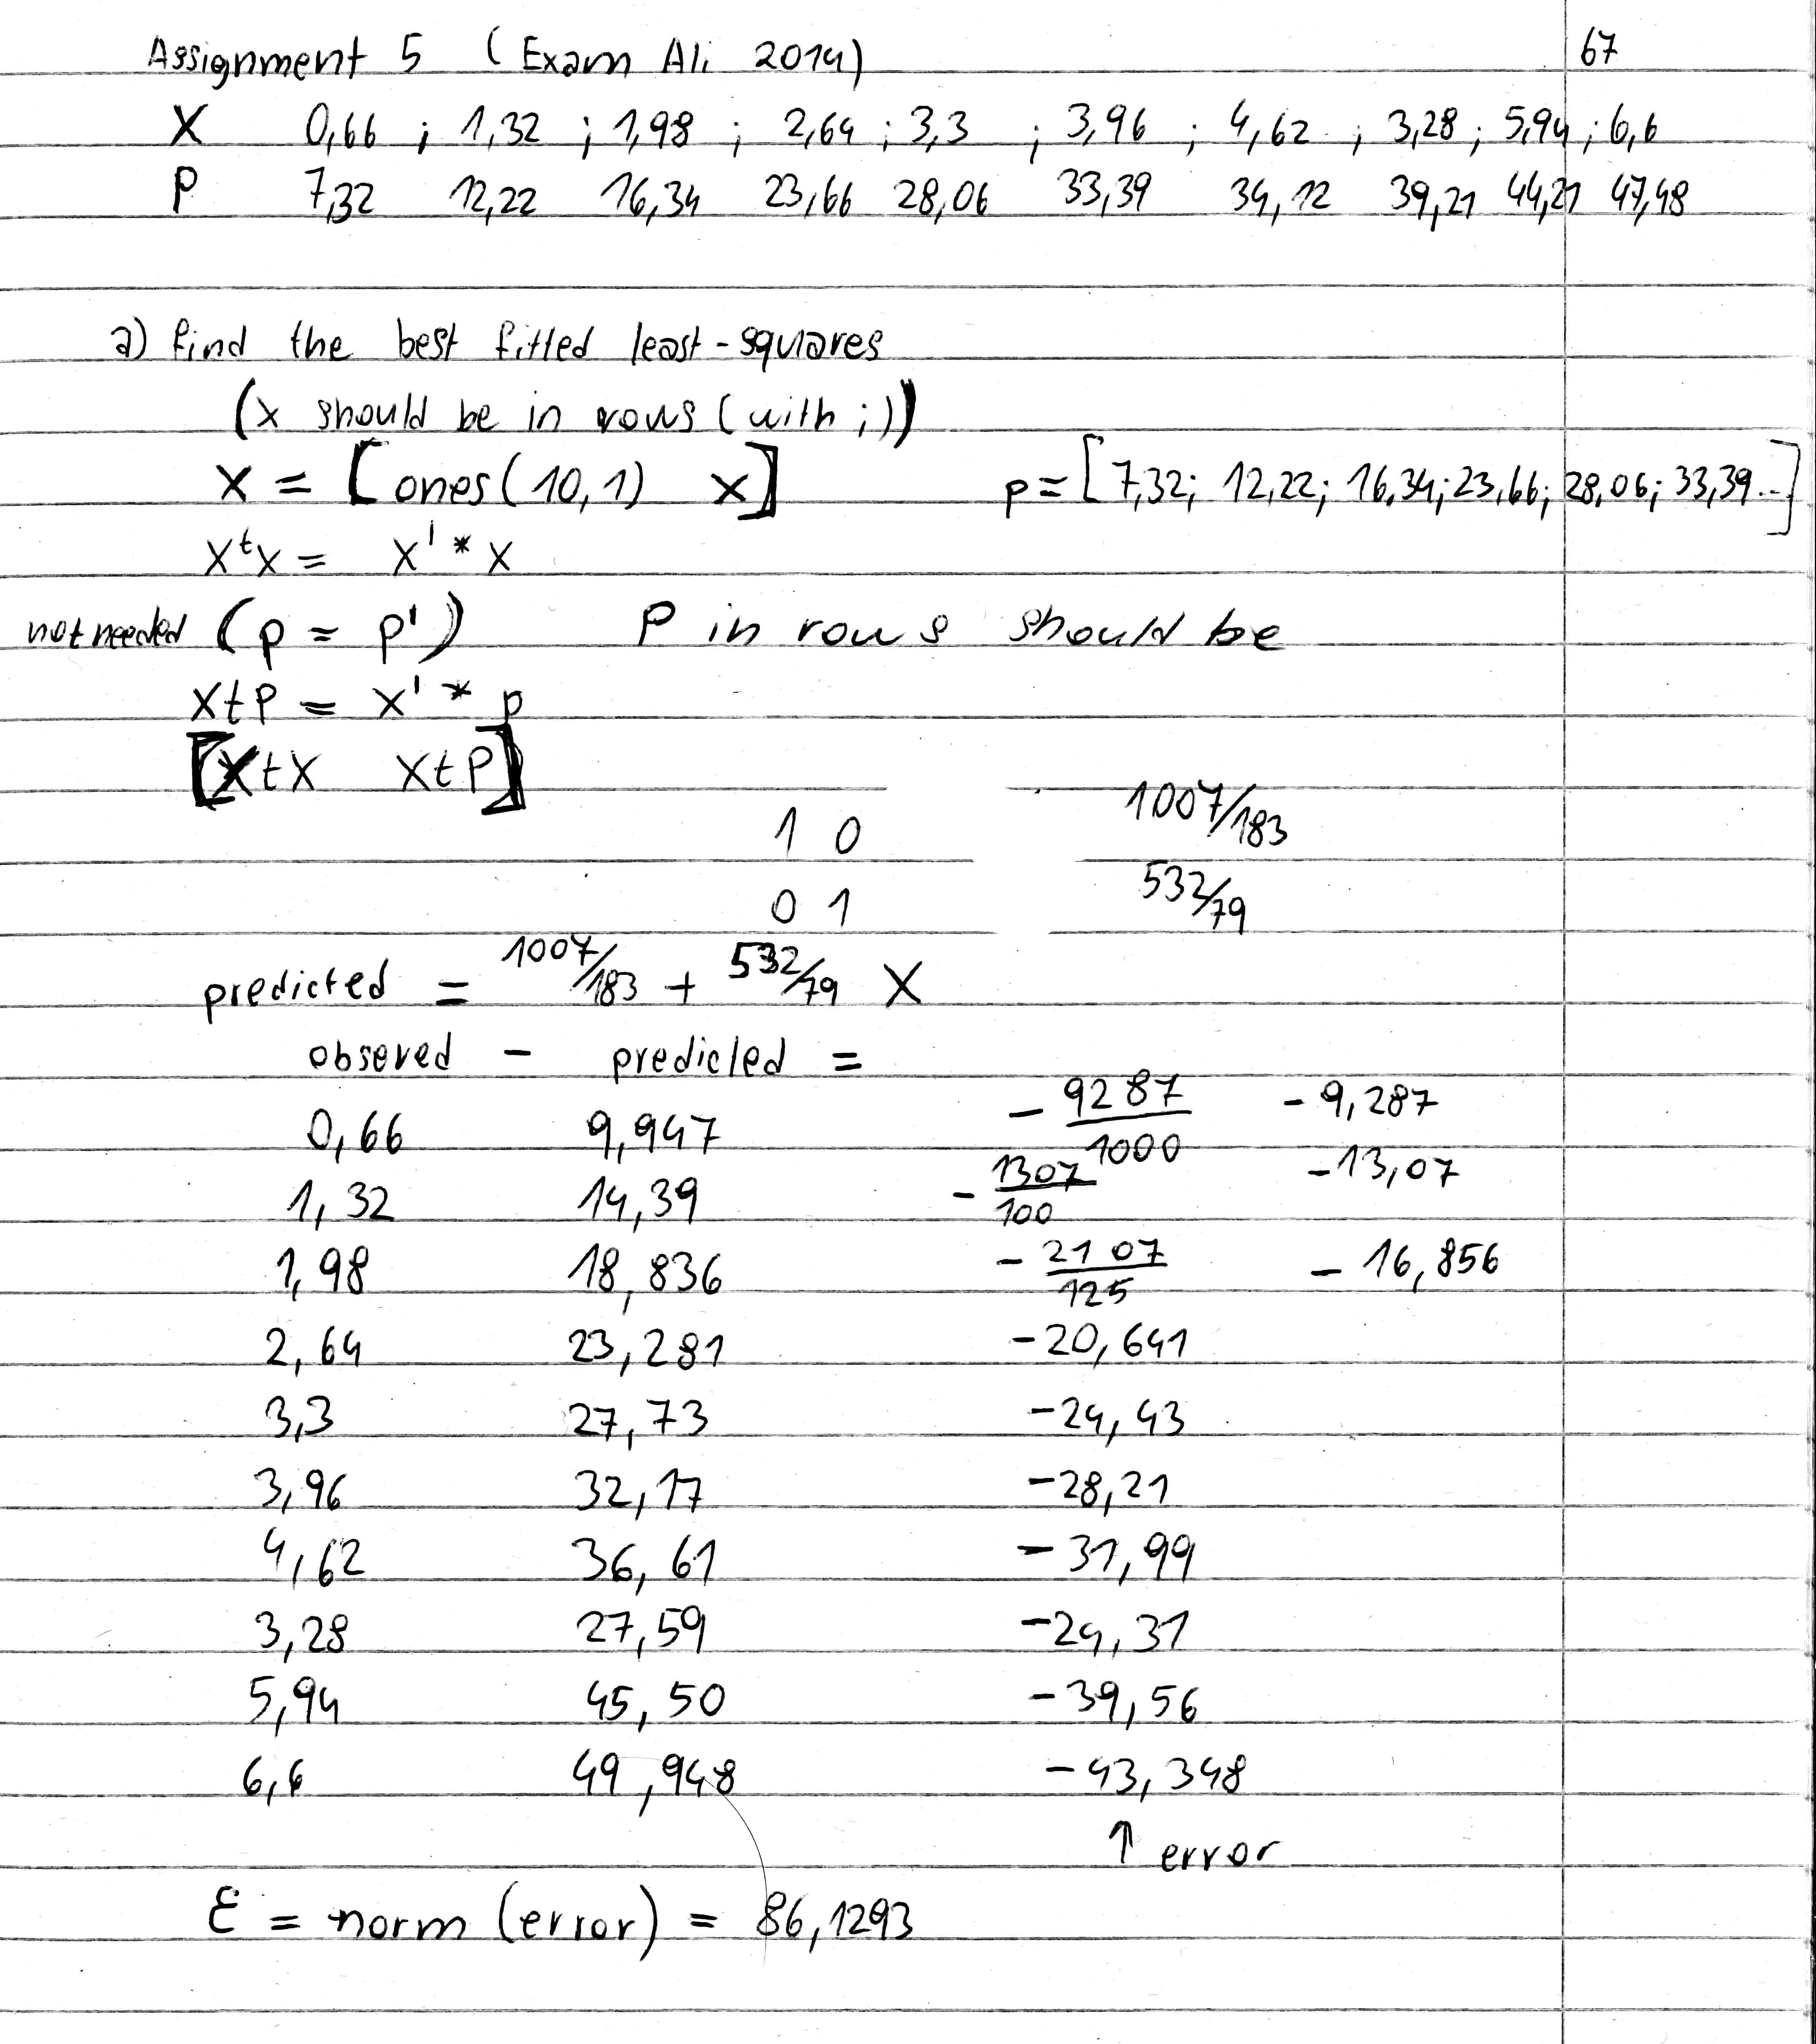 67
Assignment 5 (Exam Ali 2014)
X 0,66 ; 1,32 ; 1,98 ; 2,64 ; 3,3 ; 3,96 ; 4,62 ; 3,28 ; 5,94 ; 6,6
P 7,32 12,22 16,34 23,66 28,06 33,39 34,12 39,21 44,21 47,48
a) find the best fitted least-squares
(x should be in rows (with ;))
X = [ones(10,1) x] p = [7,32; 12,22; 16,34; 23,66; 28,06; 33,39..]
XtX = X' * X
not needed (p = p') P in rows should be
XtP = X' * p
[XtX XtP]
1 0 1007/183
0 1 532/79
predicted = 1007/183 + 532/79 X
obseved - predicted =
0,66 9,947 - 9287/1000 - 9,287
1,32 14,39 - 1307/100 -13,07
1,98 18,836 - 2107/125 - 16,856
2,64 23,281 -20,641
3,3 27,73 -24,43
3,96 32,17 -28,21
4,62 36,61 -31,99
3,28 27,59 -24,31
5,94 45,50 -39,56
6,6 49,948 -43,348
↑ error
Ɛ = norm (error) = 86,1293